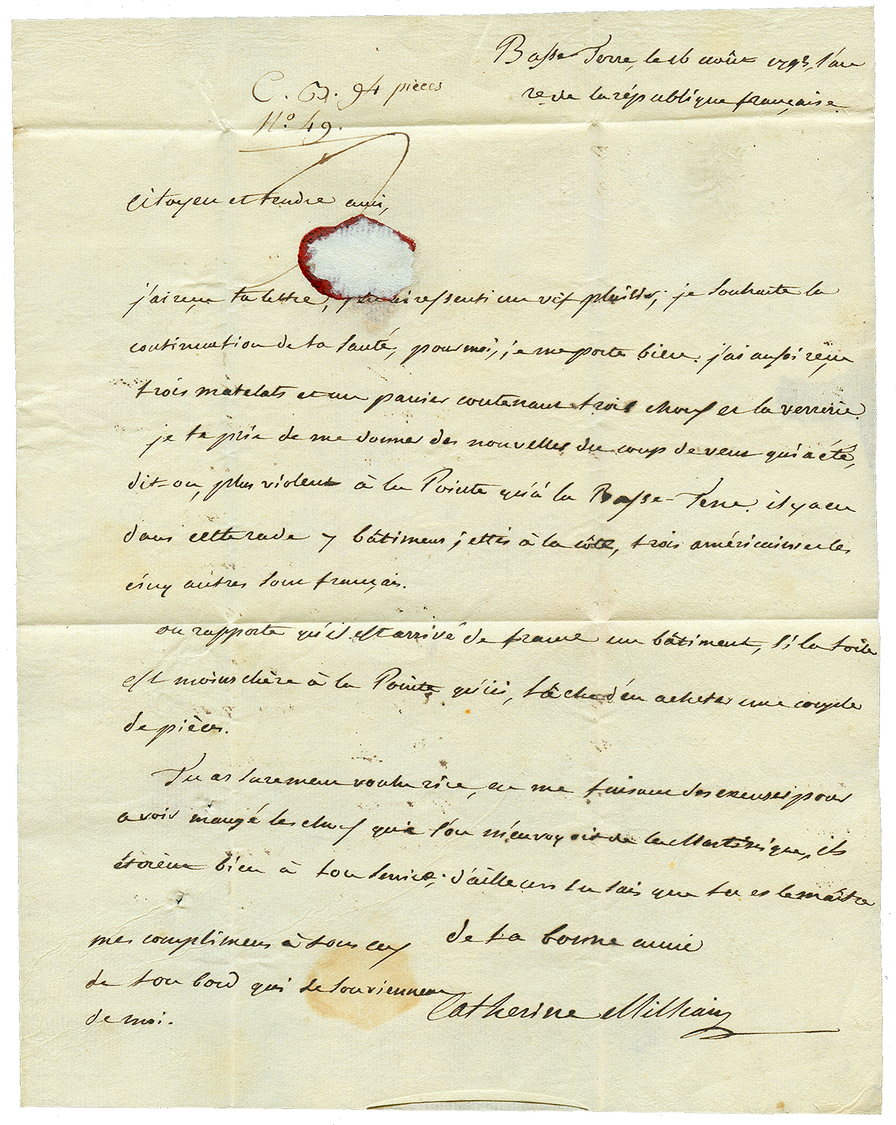 Basse Terre, le 16 août 1793, l'an
2e de la république française.
C. G. 94 pièces
N.o 49.
Citoyen et tendre ami,
j'ai reçu ta lettre, j'en ai ressenti un vif plaisir; je souhaite la
continuation de ta santé, pour moi, je me porte bien. j'ai aussi reçu
trois matelats et un panier contenant trois choux et la verrerie.
je te prie de me donner des nouvelles du coup de vent qui a été,
dit-on, plus violent à la Pointe qu'à la Basse-Terre. il y a eu
dans cette rade 7 bâtimens jettés à la côte, trois américains et les
cinq autres sont français.
on rapporte qu'il est arrivé de france un bâtiment, si la toile
est moins chère à la Pointe qu'ici, tâche d'en acheter une couple
de pièces.
Tu as surement voulu rire, en me faisant des excuses pour
avoir mangé les choux que l'on m'envoyoit de la Martinique, ils
étoient bien à ton service; d'ailleurs tu sais que tu es le maître
de ta bonne amie
mes complimens à tous ceux
de ton bord qui se souviennent
de moi.
Catherine